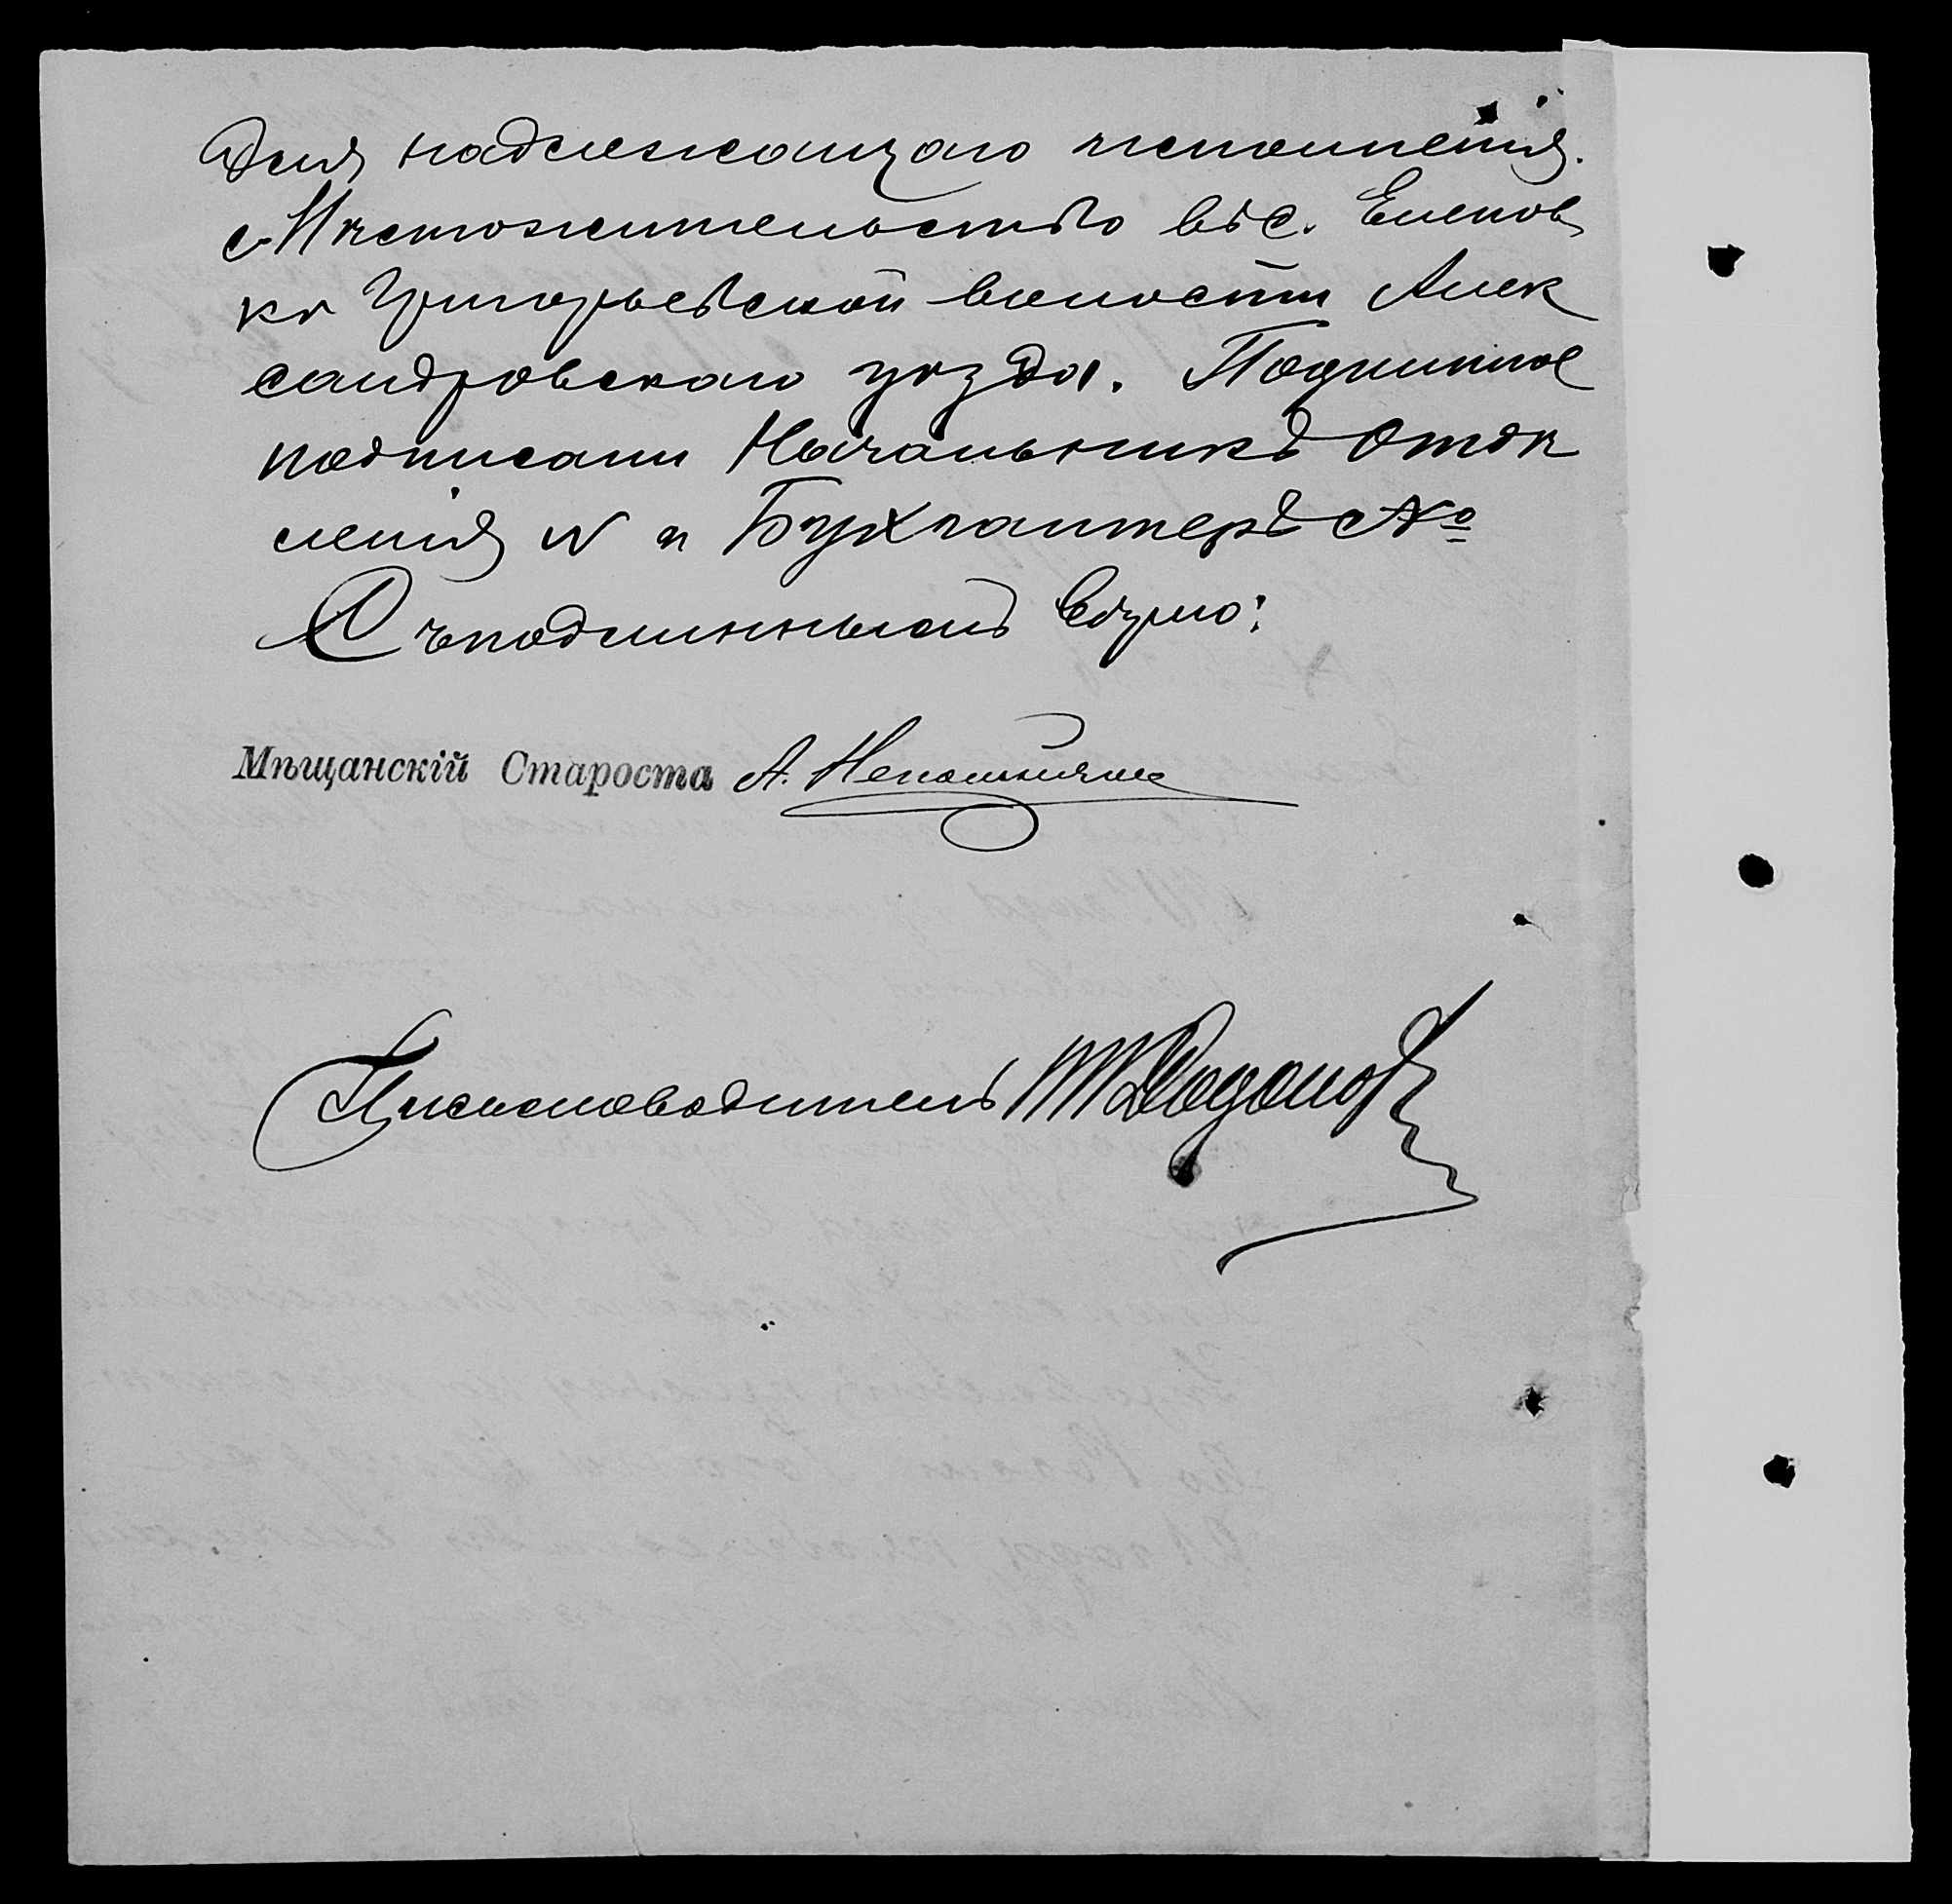 для надлежащаго исполненія.
Мѣстожительство въ с. Еленов
кѣ Григорьевской волости Алек
сандровскаго уѣзда. Подлинное
подписали Начальникъ Отдѣ
ленія N и Бухгалтеръ №
Съ подлиннымъ вѣрно:
Мѣщанскій Староста А.
Письмоводитель